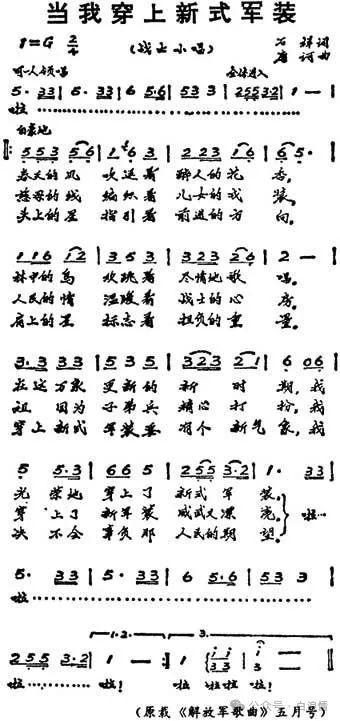 当我穿上新式军装
1=G 2/4
（战士小唱）
石祥词
唐诃曲
领唱
全体进入
5· 33 | 5· 33 | 6 5·6 | 53 3 | 2553 3·2 | 1 — |
啦……
自豪地
553 56 | 1 6 3 | 223 16 | 6 5· |
春天的风 吹送着 醉人的花 香，
慈母的线 编织着 儿女的戎 装。
头上的星 指引着 前进的方 向。
116 12 | 3 5 3 | 323 26 | 2 — |
林中的鸟 欢跳着 尽情地歌 唱。
人民的情 温暖着 战士的心 房。
肩上的星 标志着 担负的重 量。
3·3 33 | 5 3 5 | 323 21 | 6 06 |
在这万象 更新的 新 时 期，我
祖国为 子弟兵 精心打 扮，我
穿上新式 军装要 有个新气 象，我
5 5·3 | 66 5 | 255 3·2 | 1· 33 |
光荣地 穿上了 新式军 装。
穿上了 新军装 威武又漂 亮。 啦…
决不会 辜负那 人民的期 望。
5· 33 | 5· 33 | 6 5·6 | 553 3 |
啦……
1.2. 3.
255 3·2 | 1 — :| 1 i i 33 33 | i — ‖
啦…… 啦！ 啦 啦啦 啦！
（原载《解放军歌曲》五月号）